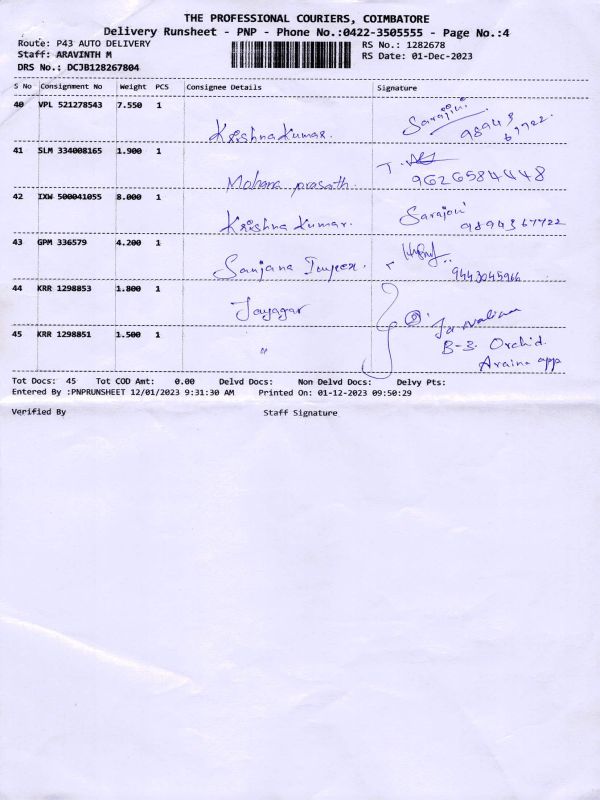 THE PROFESSIONAL COURIERS, COIMBATORE
Delivery Runsheet - PNP - Phone No.:0422-3505555 - Page No.:4
Route: P43 AUTO DELIVERY RS No.: 1282678
Staff: ARAVINTH M RS Date: 01-Dec-2023
DRS No.: DCJB128267804
S No Consignment No Weight PCS Consignee Details Signature
40 VPL 521278543 7.550 1 Krishna Kumar. Sarajini
41 SLM 334008165 1.900 1 Mohana prasath. T. 9626584448
42 IXW 500041055 8.000 1 Krishna Kumar. Sarajini 9894367722
43 GPM 336579 4.200 1 Sanjana Impex. 9443045966
44 KRR 1298853 1.800 1 Jayagar
45 KRR 1298851 1.500 1 " B-3 Orchid.
app
Tot Docs: 45 Tot COD Amt: 0.00 Delvd Docs: Non Delvd Docs: Delvy Pts:
Entered By :PNPRUNSHEET 12/01/2023 9:31:30 AM Printed On: 01-12-2023 09:50:29
Verified By Staff Signature